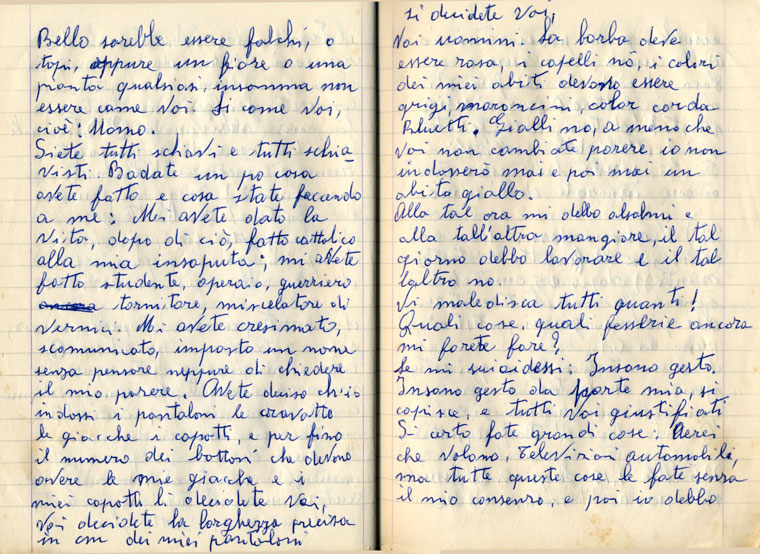 Bello sarebbe essere falchi, o
topi, oppure un fiore o una
pianta qualsiasi, insomma non
essere come voi. Si come voi,
cioè: Uomo.
Siete tutti schiavi e tutti schia-
visti. Badate un po cosa
avete fatto e cosa state facendo
a me: Mi avete dato la
vita, dopo di ciò, fatto cattolico
alla mia insaputa; mi avete
fatto studente, operaio, guerriero
ancora tornitore, miscelatore di
vernici. Mi avete cresimato,
scomunicato, imposto un nome
senza pensare neppure di chiedere
il mio parere. Avete deciso ch'io
indossi i pantaloni le cravatte
le giacche i capotti, e per fino
il numero dei bottoni che devono
avere le mie giacche e i
miei capotti li decidete voi,
voi decidete la larghezza precisa
in cm dei miei pantaloni
li decidete voi,
Voi uomini. La barba deve
essere rasa, i capelli nò, i colori
dei miei abiti devono essere
grigi maroncini, color corda
Bluetti. Gialli no, a meno che
voi non cambiate parere, io non
indosserò mai e poi mai un
abito giallo.
Alla tal ora mi debbo alzarmi e
alla tall'altra mangiare, il tal
giorno debbo lavorare e il tal
laltro no.
Vi maledisca tutti quanti!
Quali cose, quali fesserie ancora
mi farete fare?
Se mi suicidessi: Insano gesto.
Insano gesto da parte mia, si
capisce, e tutti voi giustificati
Si certo fate grandi cose: Aerei
che volano, Televisioni automobili,
ma tutte queste cose le fate senza
il mio consenso, e poi io debbo